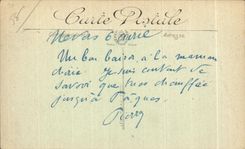 Carte Postale
Nevers 6 avril
Un bon baiser à la maman
chérie. Je suis content de
savoir que tu es chauffée
jusqu'à Pâques.